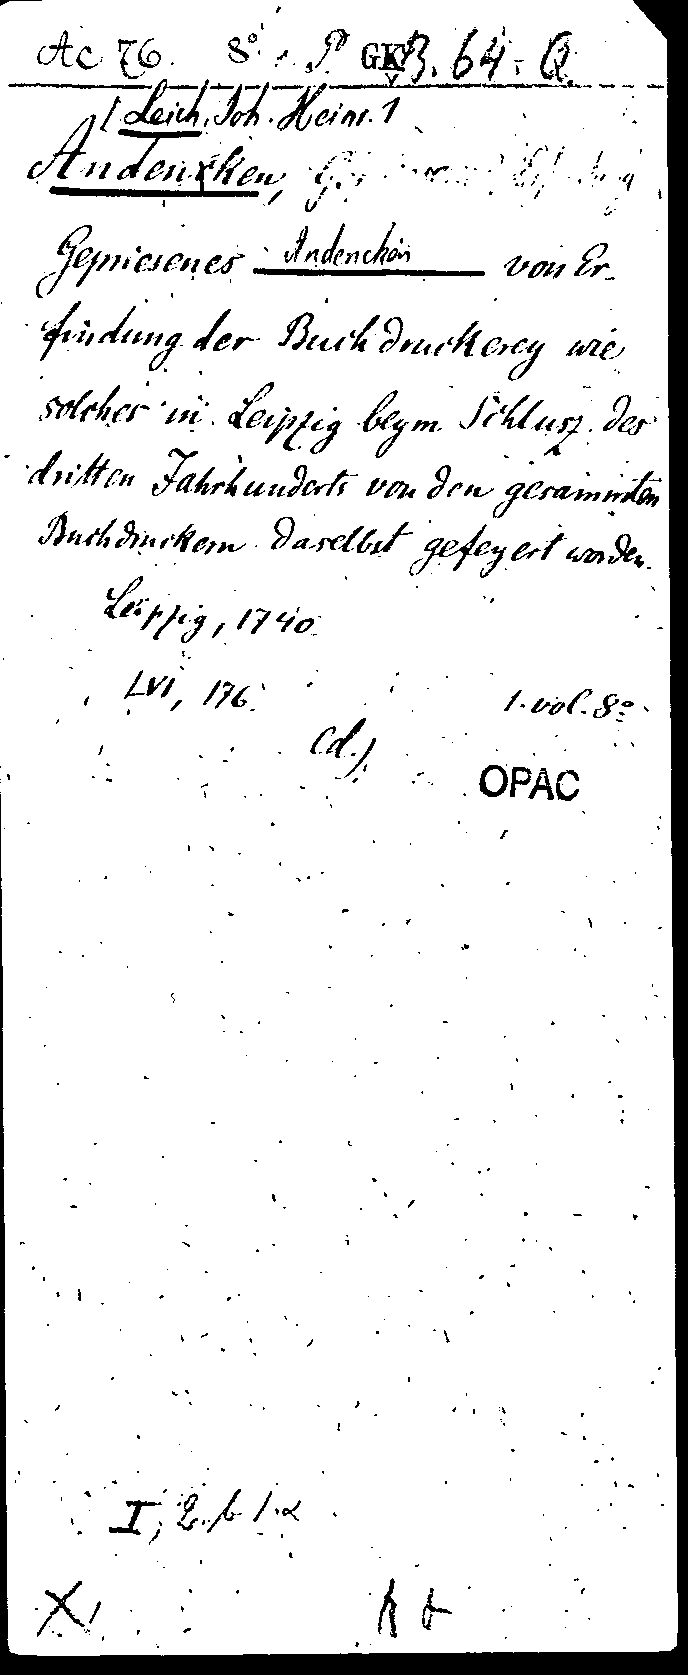 Ac 76. 8° P GK B. 64. Q.
[Leich, Joh. Heinr.]
Andencken,
Gepriesenes Andencken von Er-
findung der Buchdruckerey wie
solches in Leipzig beym Schlusz des
dritten Jahrhunderts von den gesammten
Buchdruckern daselbst gefeyert worden.
Leipzig, 1740.
LVI, 176.
1. vol. 8°
(d.)
OPAC